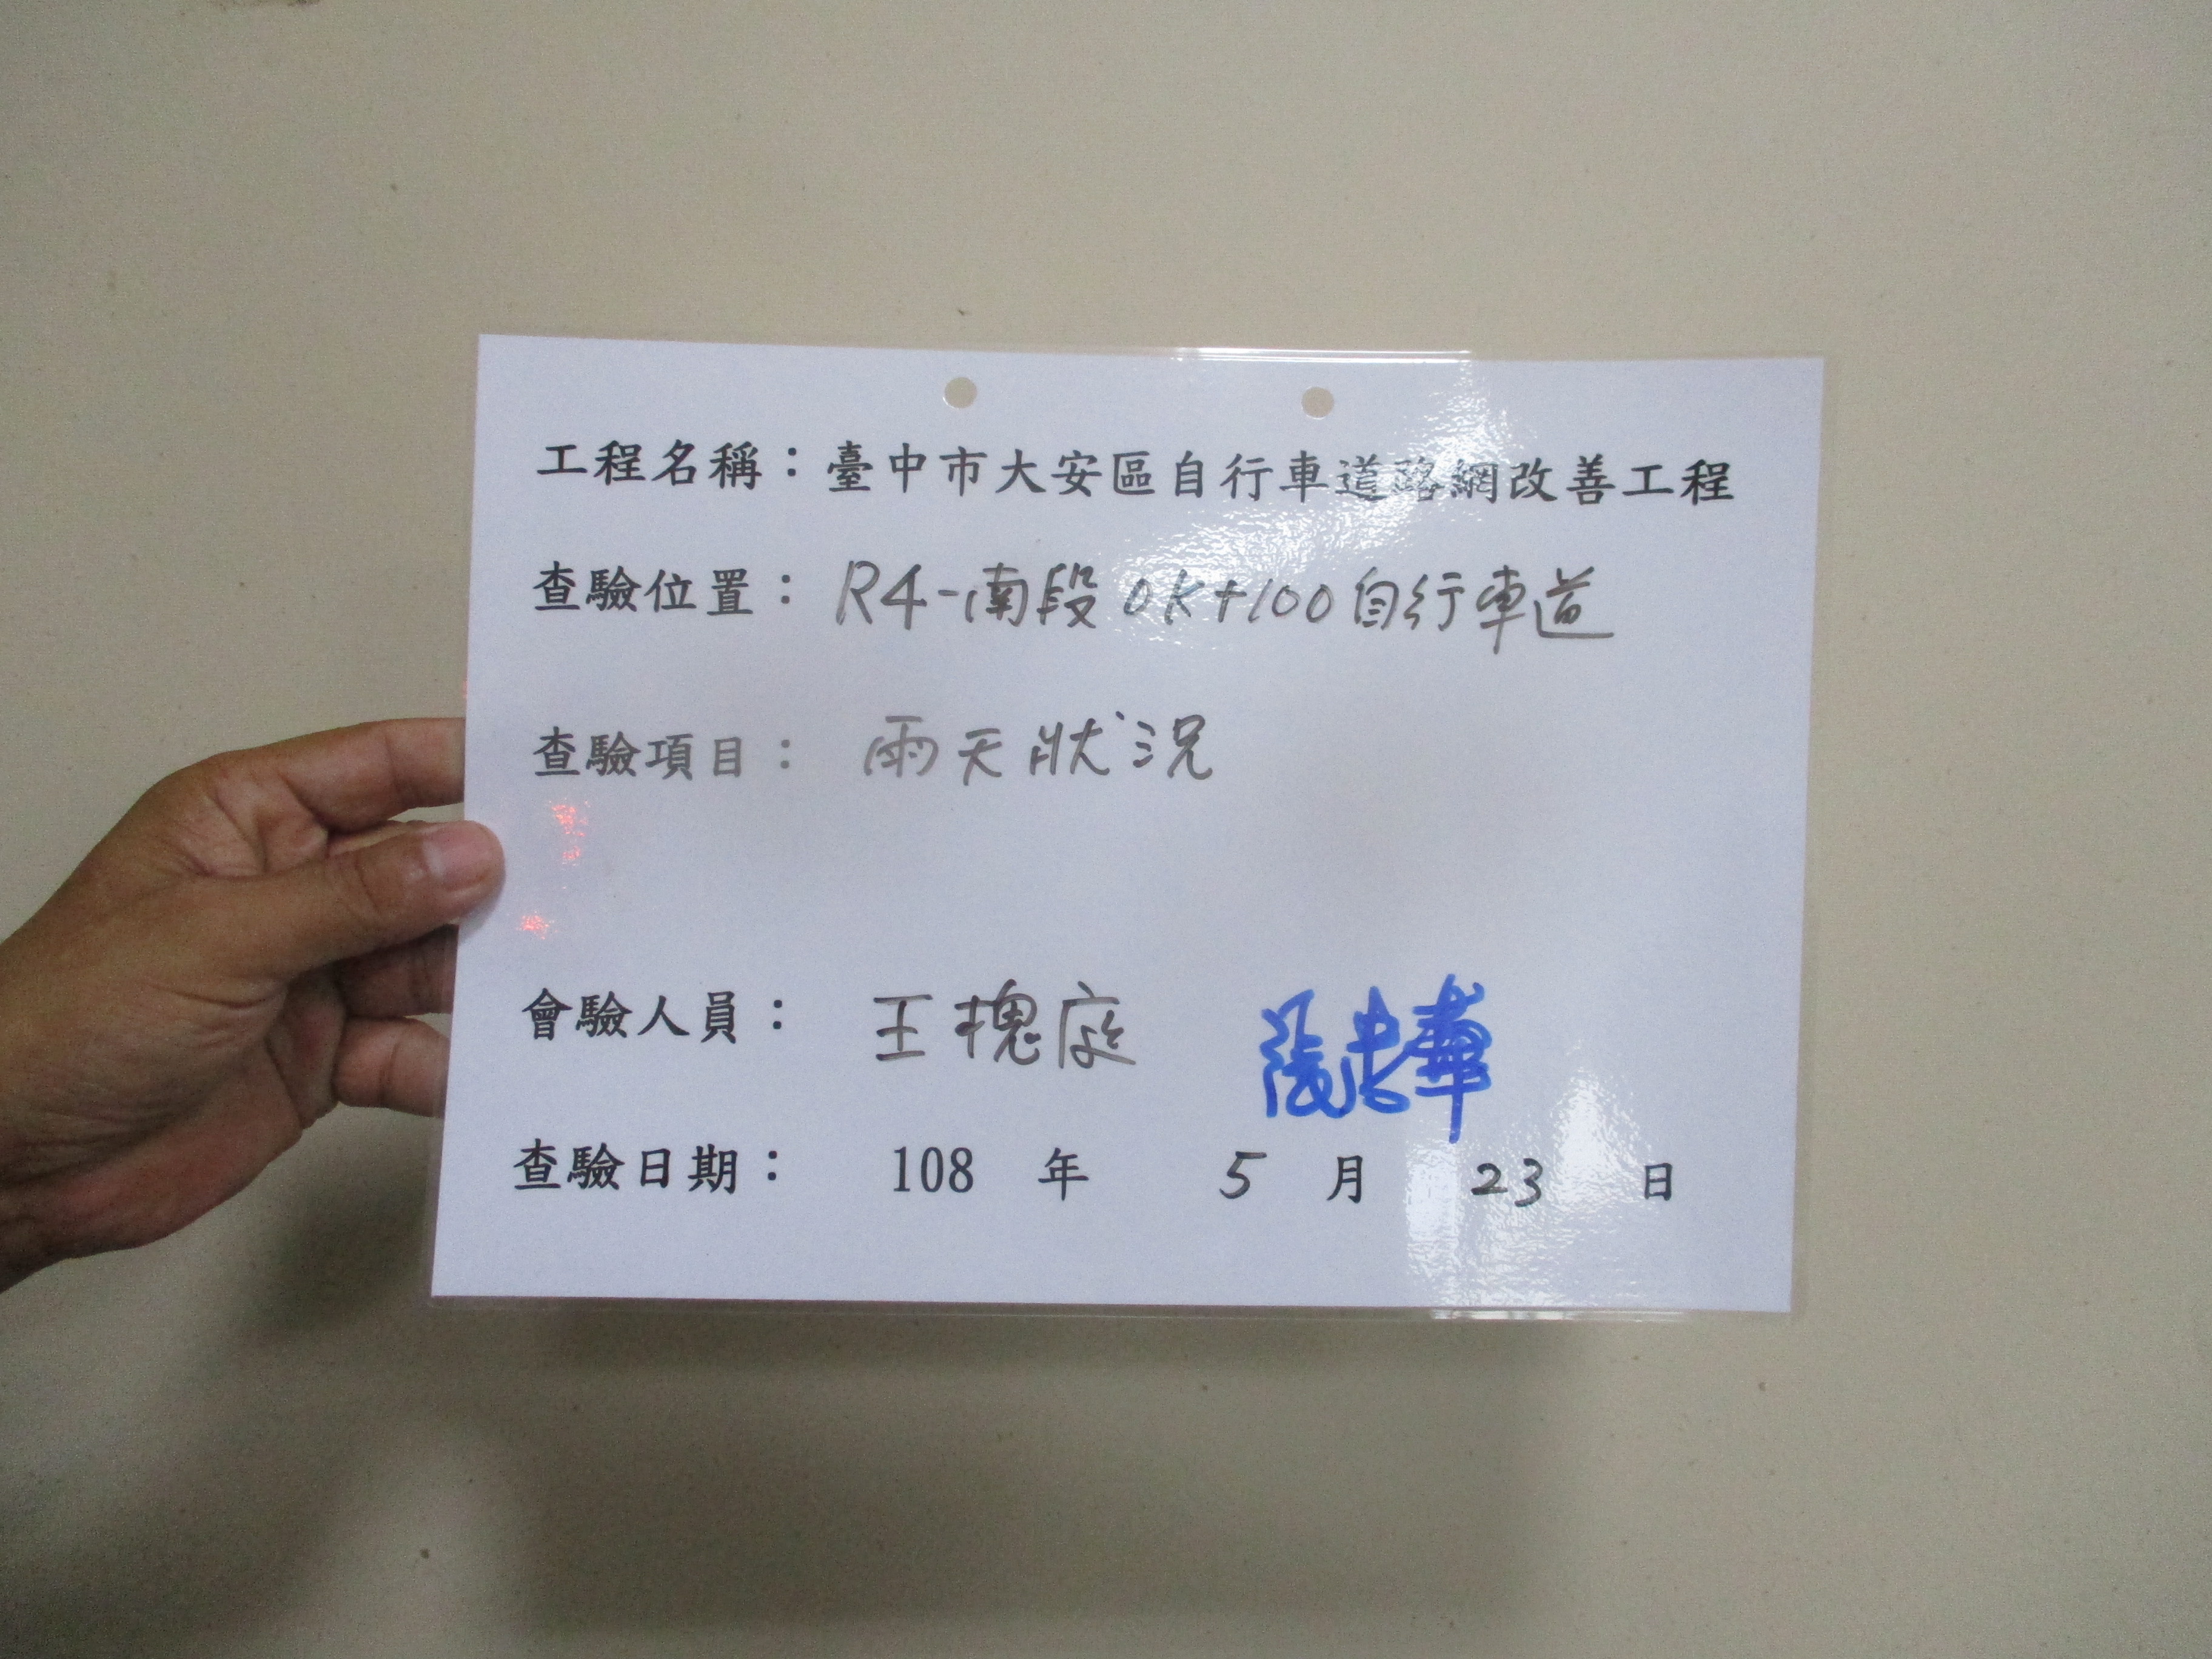 工程名稱：臺中市大安區自行車道路網改善工程
查驗位置：R4-南段 0K+100自行車道
查驗項目：雨天狀況
會驗人員：王槐庭
查驗日期：108 年 5 月 23 日